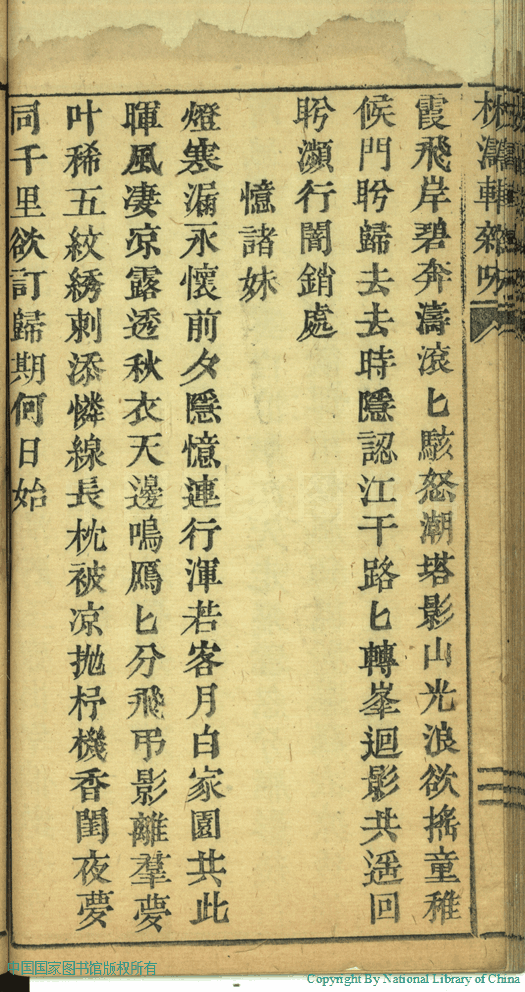 霞飛岸碧奔濤滾匕駭怒潮塔影山光浪欲搖童稚
候門盻歸去去時隱認江干路匕轉峯迴影共遥回
盻瀕行闇銷處
憶諸妹
燈寒漏永懷前夕隱憶連行渾若客月白家園共此
暉風凄凉露透秋衣天邊鳴鴈匕分飛弔影離羣夢
叶稀五紋綉刺添憐線長枕被凉抛杼機香閨夜夢
同千里欲訂歸期何日始
中国国家图书馆版权所有
Copyright By National Library of China